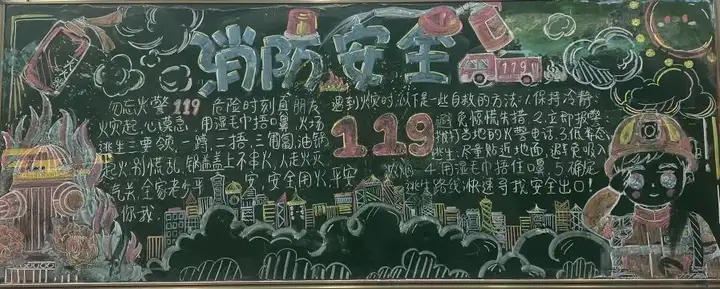 消防安全
119
勿忘火警119 危险时刻真朋友
火灾起,心莫急,用湿毛巾捂口鼻,火场
逃生三要领,一蹲二捂三匍匐,油锅
起火别慌乱,锅盖盖上不串火,人走火灭
气关,全家老少平安,安全用火,平安
你我。
119
遇到火灾时,以下是一些自救的方法:1.保持冷静
避免惊慌失措 2.立即报警
拨打当地的火警电话 3.低姿态
逃生尽量贴近地面,避免吸入
浓烟 4.用湿毛巾捂住口鼻 5.确定
逃生路线,快速寻找安全出口!